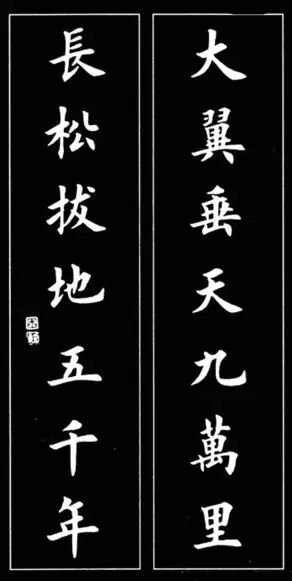 大翼垂天九萬里
長松拔地五千年